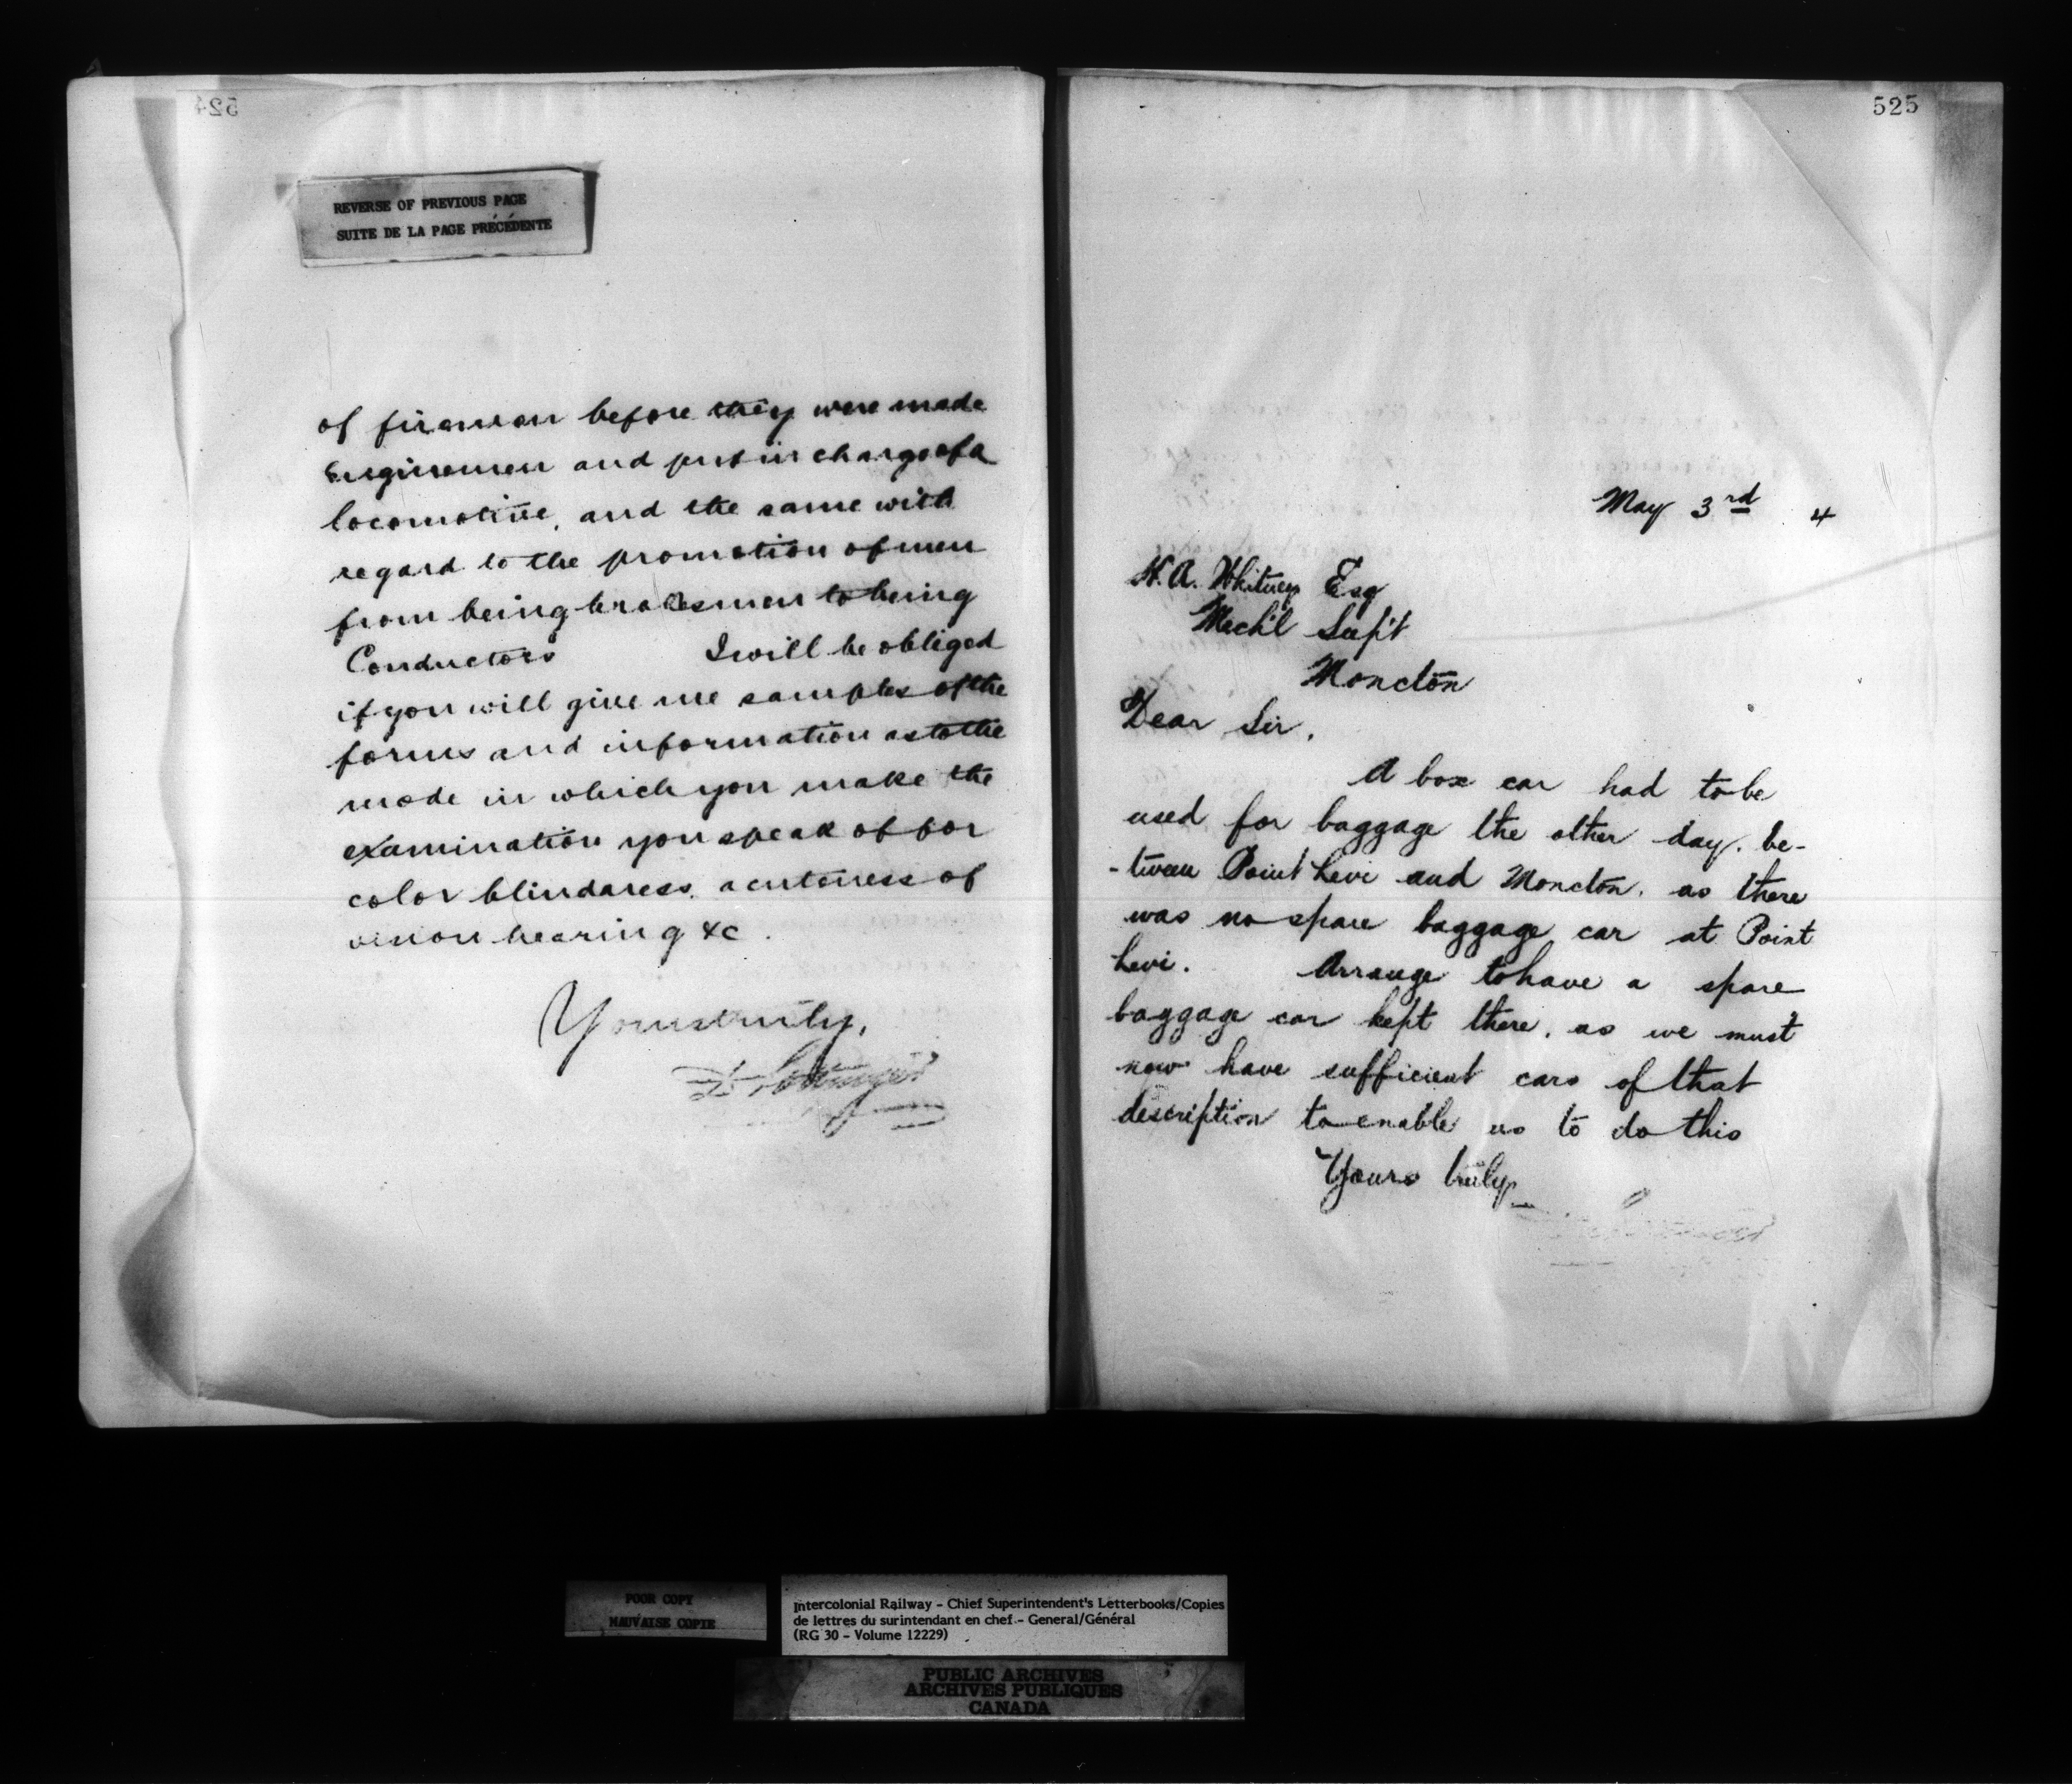 524
REVERSE OF PREVIOUS PAGE
SUITE DE LA PAGE PRÉCÉDENTE
of firemen before they were made
Enginemen and put in charge of a
locomotive, and the same with
regard to the promotion of men
from being brakesmen to being
Conductors I will be obliged
if you will give me samples of the
forms and information as to the
mode in which you make the
examination you speak of for
color blindness, acuteness of
vision hearing &c.
Yours truly,
D. Pottinger
525
May 3rd 4
H. A. Whitney Esq
Mech'l Sup't
Moncton
Dear Sir,
A box car had to be
used for baggage the other day, be-
-tween Point Levi and Moncton, as there
was no spare baggage car at Point
Levi. Arrange to have a spare
baggage car kept there, as we must
now have sufficient cars of that
description to enable us to do this
Yours truly
POOR COPY
MAUVAISE COPIE
Intercolonial Railway - Chief Superintendent's Letterbooks/Copies
de lettres du surintendant en chef - General/Général
(RG 30 - Volume 12229)
PUBLIC ARCHIVES
ARCHIVES PUBLIQUES
CANADA